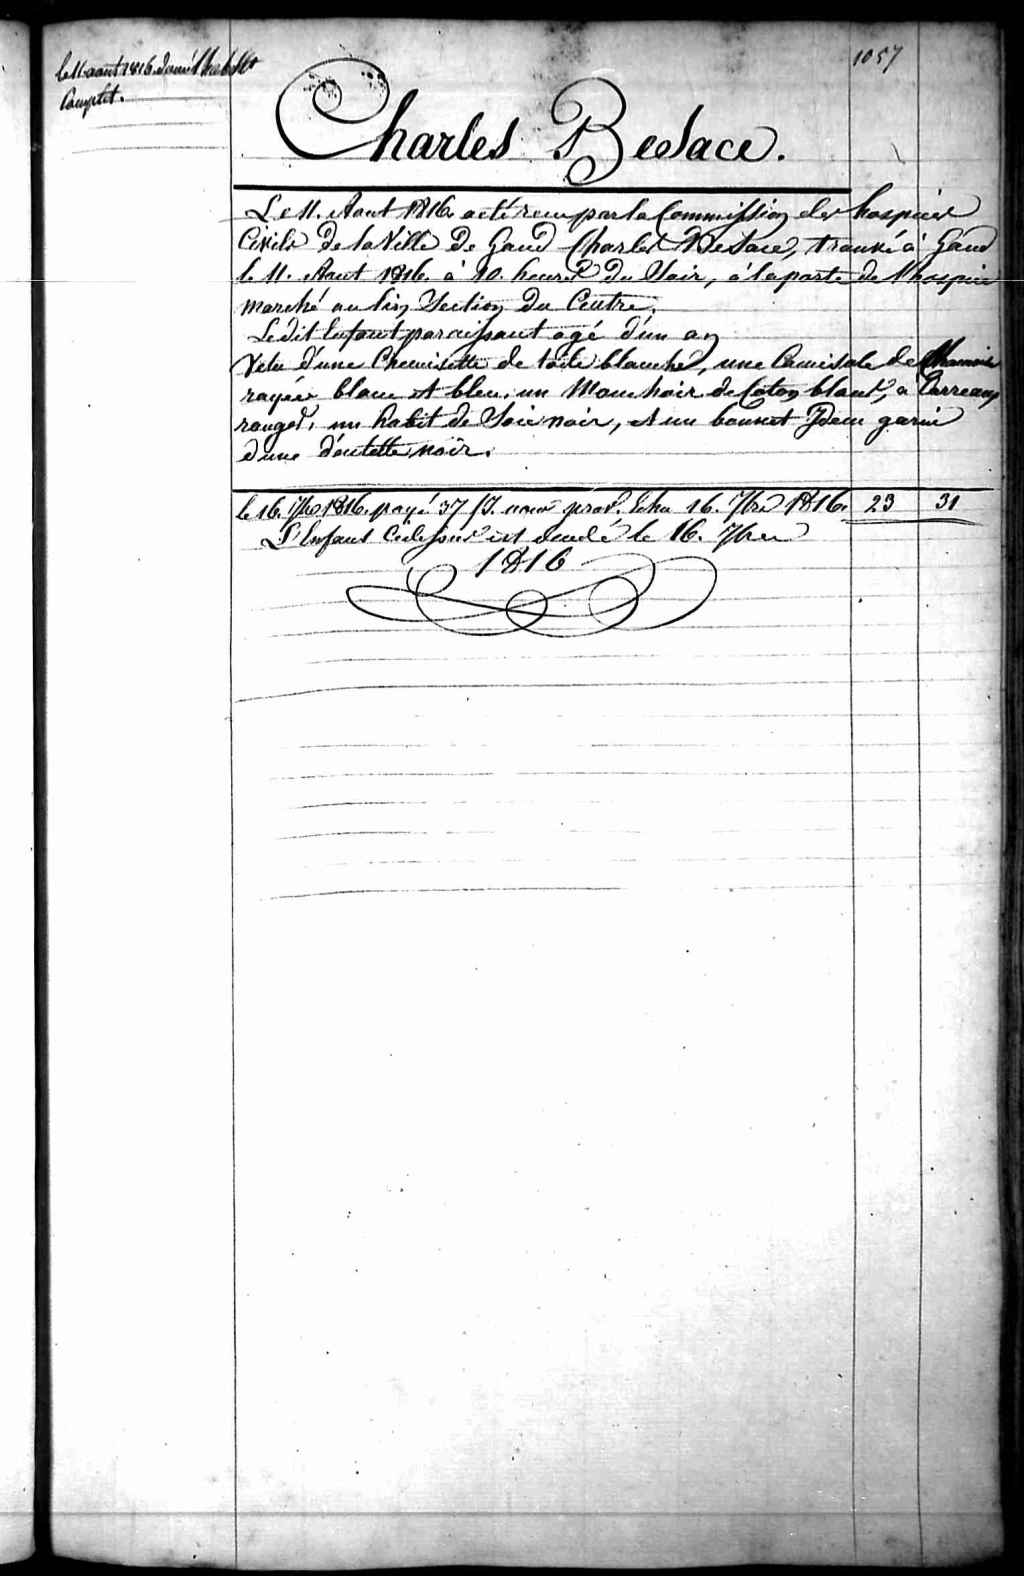 1057
le 11 aout 1816. donné l'habillt
Complet.
Charles Besace.
Le 11. Aout 1816. a eté reçu par la Commission des hospices
Civils De la Ville De Gand Charles Besace, trouvé à Gand
le 11. Aout 1816. à 10. heures Du Soir, à la porte de l'hospice
marché au lin Section Du Centre.
Ledit Enfant paraissant agé d'un an
Vetu d'une Chemisette de toile blanche, une Camisole de
rayée blanc et bleu, un Mouchoir de Coton blanc, a Carreaux
rouges, un habit de Soie noir, et un bonnet Idem garni
d'une d'entelle noir.
le 16. 7bre 1816. payé 37 J. nour prov. Echu 16. 7bre 1816. 23 31
L'Enfant Cidessus est decedé le 16. 7bre
1816